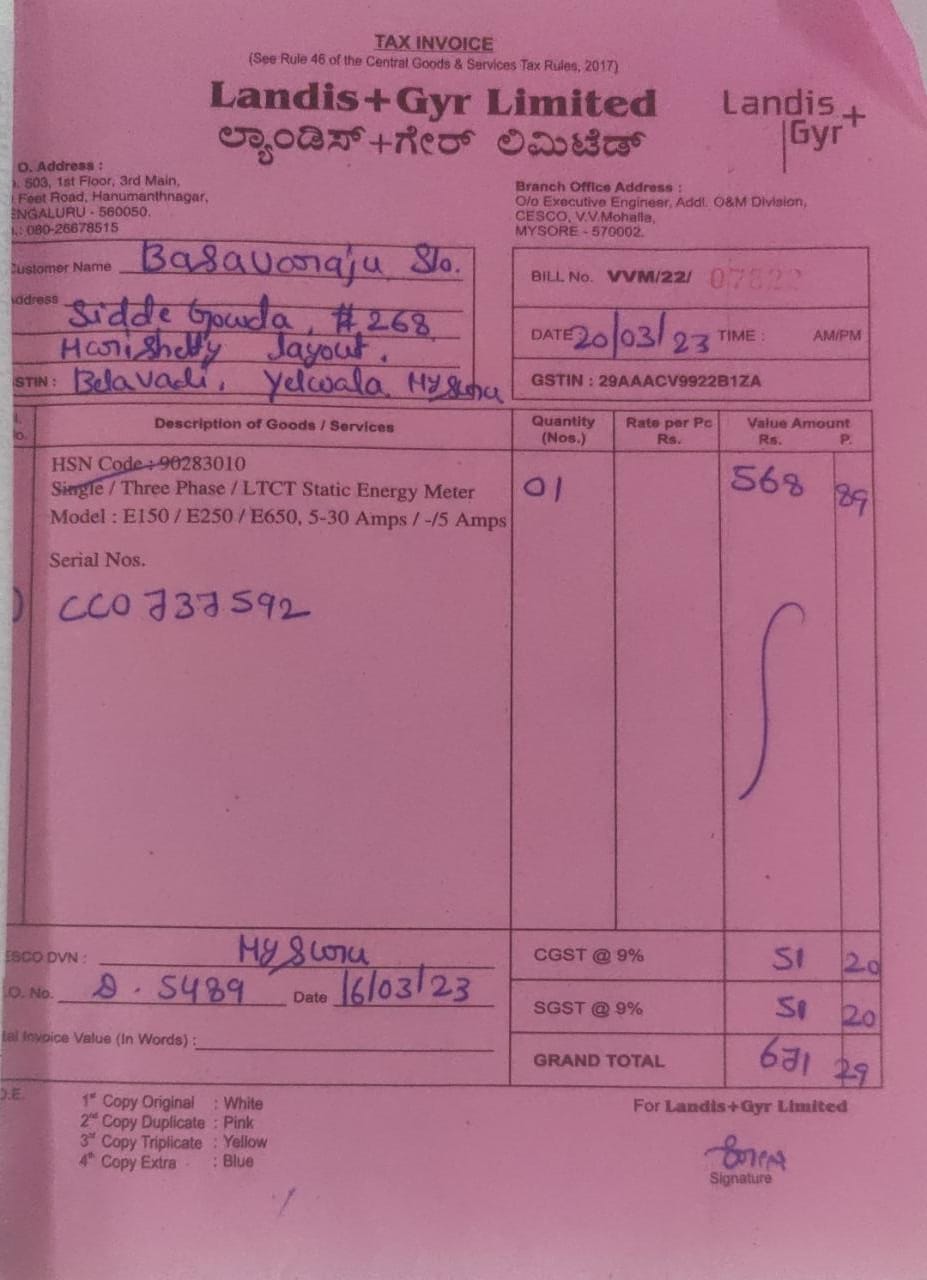 TAX INVOICE
(See Rule 46 of the Central Goods & Services Tax Rules, 2017)
Landis+Gyr Limited
ಲ್ಯಾಂಡಿಸ್+ಗೇರ್ ಲಿಮಿಟೆಡ್
Landis+
Gyr
O. Address :
503, 1st Floor, 3rd Main,
Feet Road, Hanumanthnagar,
ENGALURU - 560050.
.: 080-26678515
Branch Office Address :
O/o Executive Engineer, Addl. O&M Division,
CESCO, V.V.Mohalla,
MYSORE - 570002.
Customer Name Basavaraju S/o.
Address Sidde Gowda, #268
Harishetty layout,
STIN : Belavadi, Yelwala Mysuru
BILL No. VVM/22/ 07522
DATE 20/03/23 TIME : AM/PM
GSTIN : 29AAACV9922B1ZA
Description of Goods / Services Quantity (Nos.) Rate per Pc Rs. Value Amount Rs. P.
HSN Code : 90283010
Single / Three Phase / LTCT Static Energy Meter 01 568 89
Model : E150 / E250 / E650, 5-30 Amps / -/5 Amps
Serial Nos.
CC0737592
ESCO DVN : Mysuru
CGST @ 9% 51 20
.O. No. D. 5489 Date 16/03/23
SGST @ 9% 51 20
tal Invoice Value (In Words) :
GRAND TOTAL 671 29
O.E.
1st Copy Original : White
2nd Copy Duplicate : Pink
3rd Copy Triplicate : Yellow
4th Copy Extra : Blue
For Landis+Gyr Limited
Signature